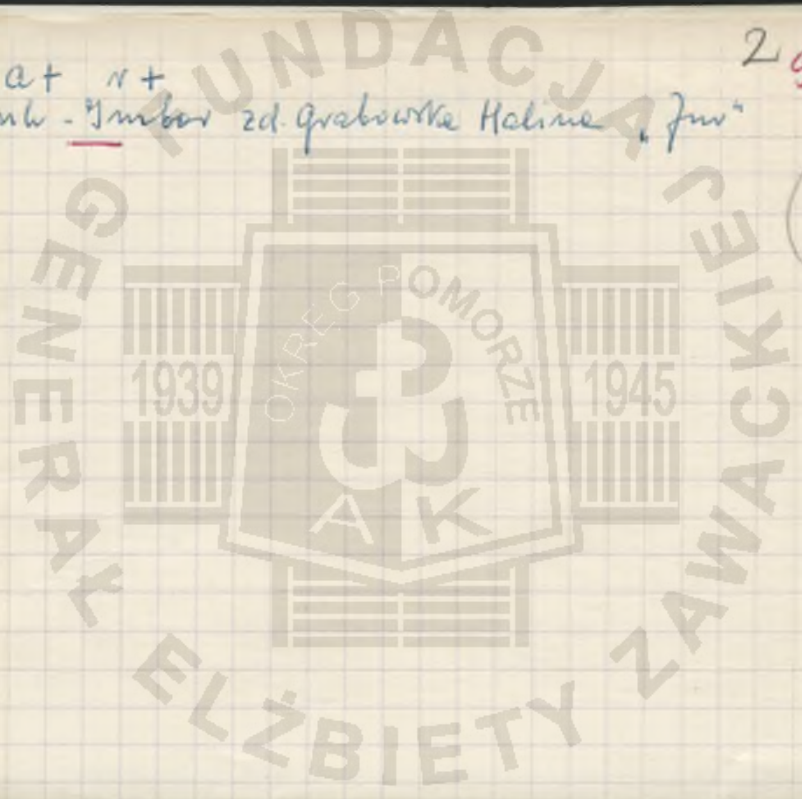 2
a+ v+
- Imbor zd. Grabowska Halina „Jur"
FUNDACJA GENERAŁ ELŻBIETY ZAWACKIEJ
OKRĘG POMORZE
1939 1945
A K